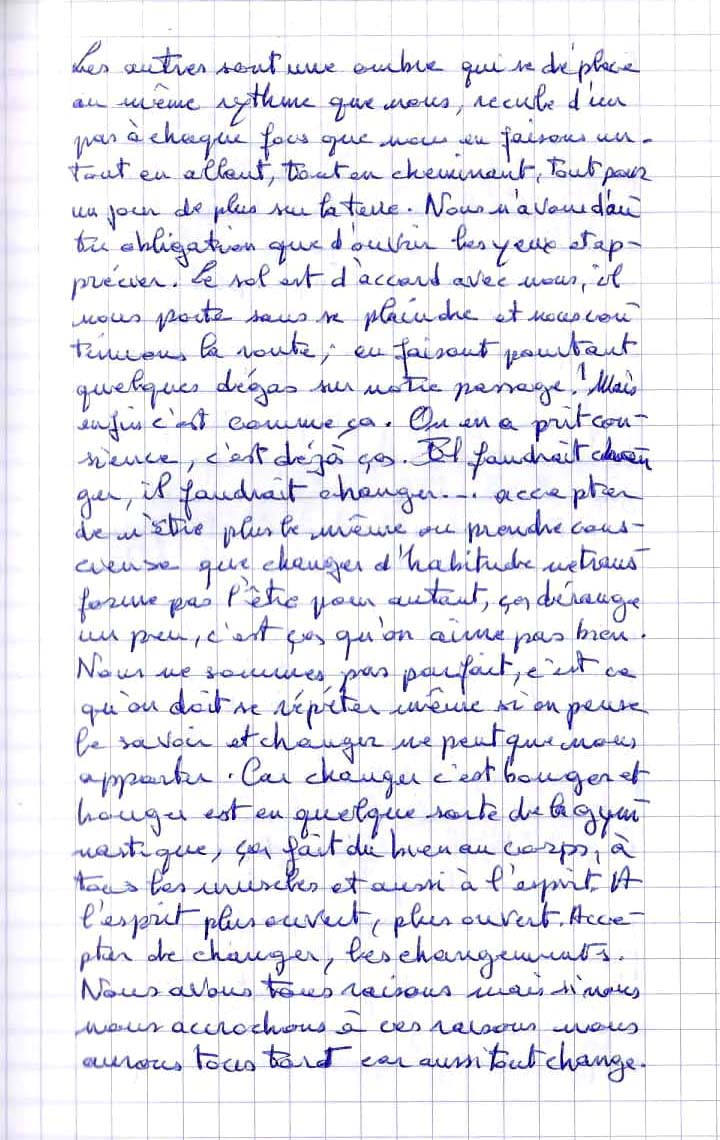 Les autres sont une ombre qui se déplace
au même rythme que nous, recule d'un
pas à chaque fois que nous en faisons un.
Tout en allant, tout en cheminant, tout pour
un jour de plus sur la terre. Nous n'avons d'au
tre obligation que d'ouvrir les yeux et ap-
précier. Le sol est d'accord avec nous, il
nous porte sans se plaindre et nous con
tinuons la route, en faisant pourtant
quelques dégas sur notre passage ! Mais
enfin c'est comme ça. On en a prit con-
sience, c'est déjà ça. Il faudrait chan
ger, il faudrait changer... accepter
de n'être plus le même ou prendre cons-
cience que changer d'habitude ne trans
forme pas l'être pour autant, ça dérange
un peu, c'est ça qu'on aime pas bien.
Nous ne sommes pas parfait, c'est ce
qu'on doit se répéter même si on pense
le savoir et changer ne peut que nous
apporter. Car changer c'est bouger et
bouger est en quelque sorte de la gym
nastique, ça fait du bien au corps, à
tous les muscles et aussi à l'esprit. A
l'esprit plus ouvert, plus ouvert. Acce-
pter de changer, les changements.
Nous avons tous raisons mais si nous
nous accrochons à ces raisons nous
aurons tous tord car aussi tout change.